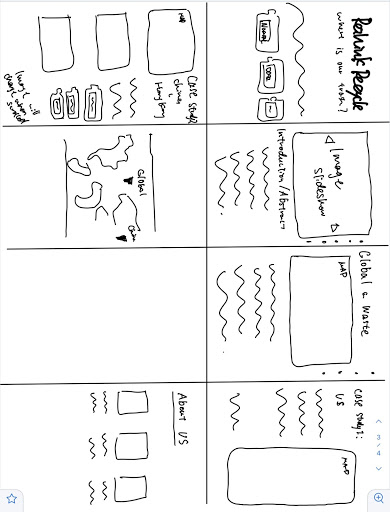 Rethink Recycle
where is our trash?
Image
slideshow
Introduction/Abstract
Global & Waste
MAP
case study 1:
US
MAP
MAP
Case study 2
China
&
Hong Kong
Image will
change when
Global
China
About US